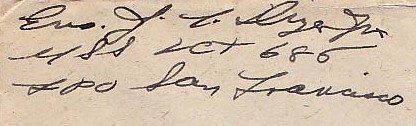 Ens. J. L. Dizer Jr
USS LCT 686
FPO San Francisco